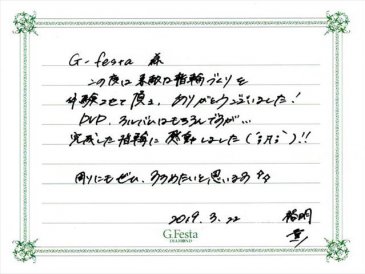 G-festa 様
この度は素敵な指輪づくりを
体験させて頂き、ありがとうございました！
DVD、アルバムはもちろんですが…
完成した指輪に感動しました(^o^)!!
周りにもぜひ、すすめたいと思います☆☆
2019.3.22 裕明
G.Festa
DIAMOND